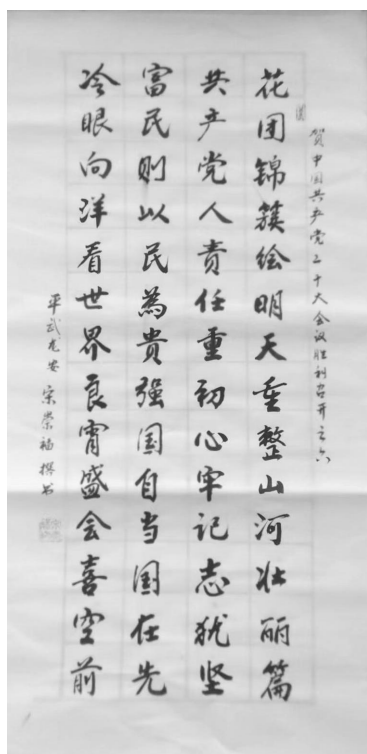 贺中国共产党二十大会议胜利召开之六
花团锦簇绘明天重整山河壮丽篇
共产党人责任重初心牢记志犹坚
富民则以民为贵强国自当国在先
冷眼向洋看世界良宵盛会喜空前
平武老安 宋崇福撰书